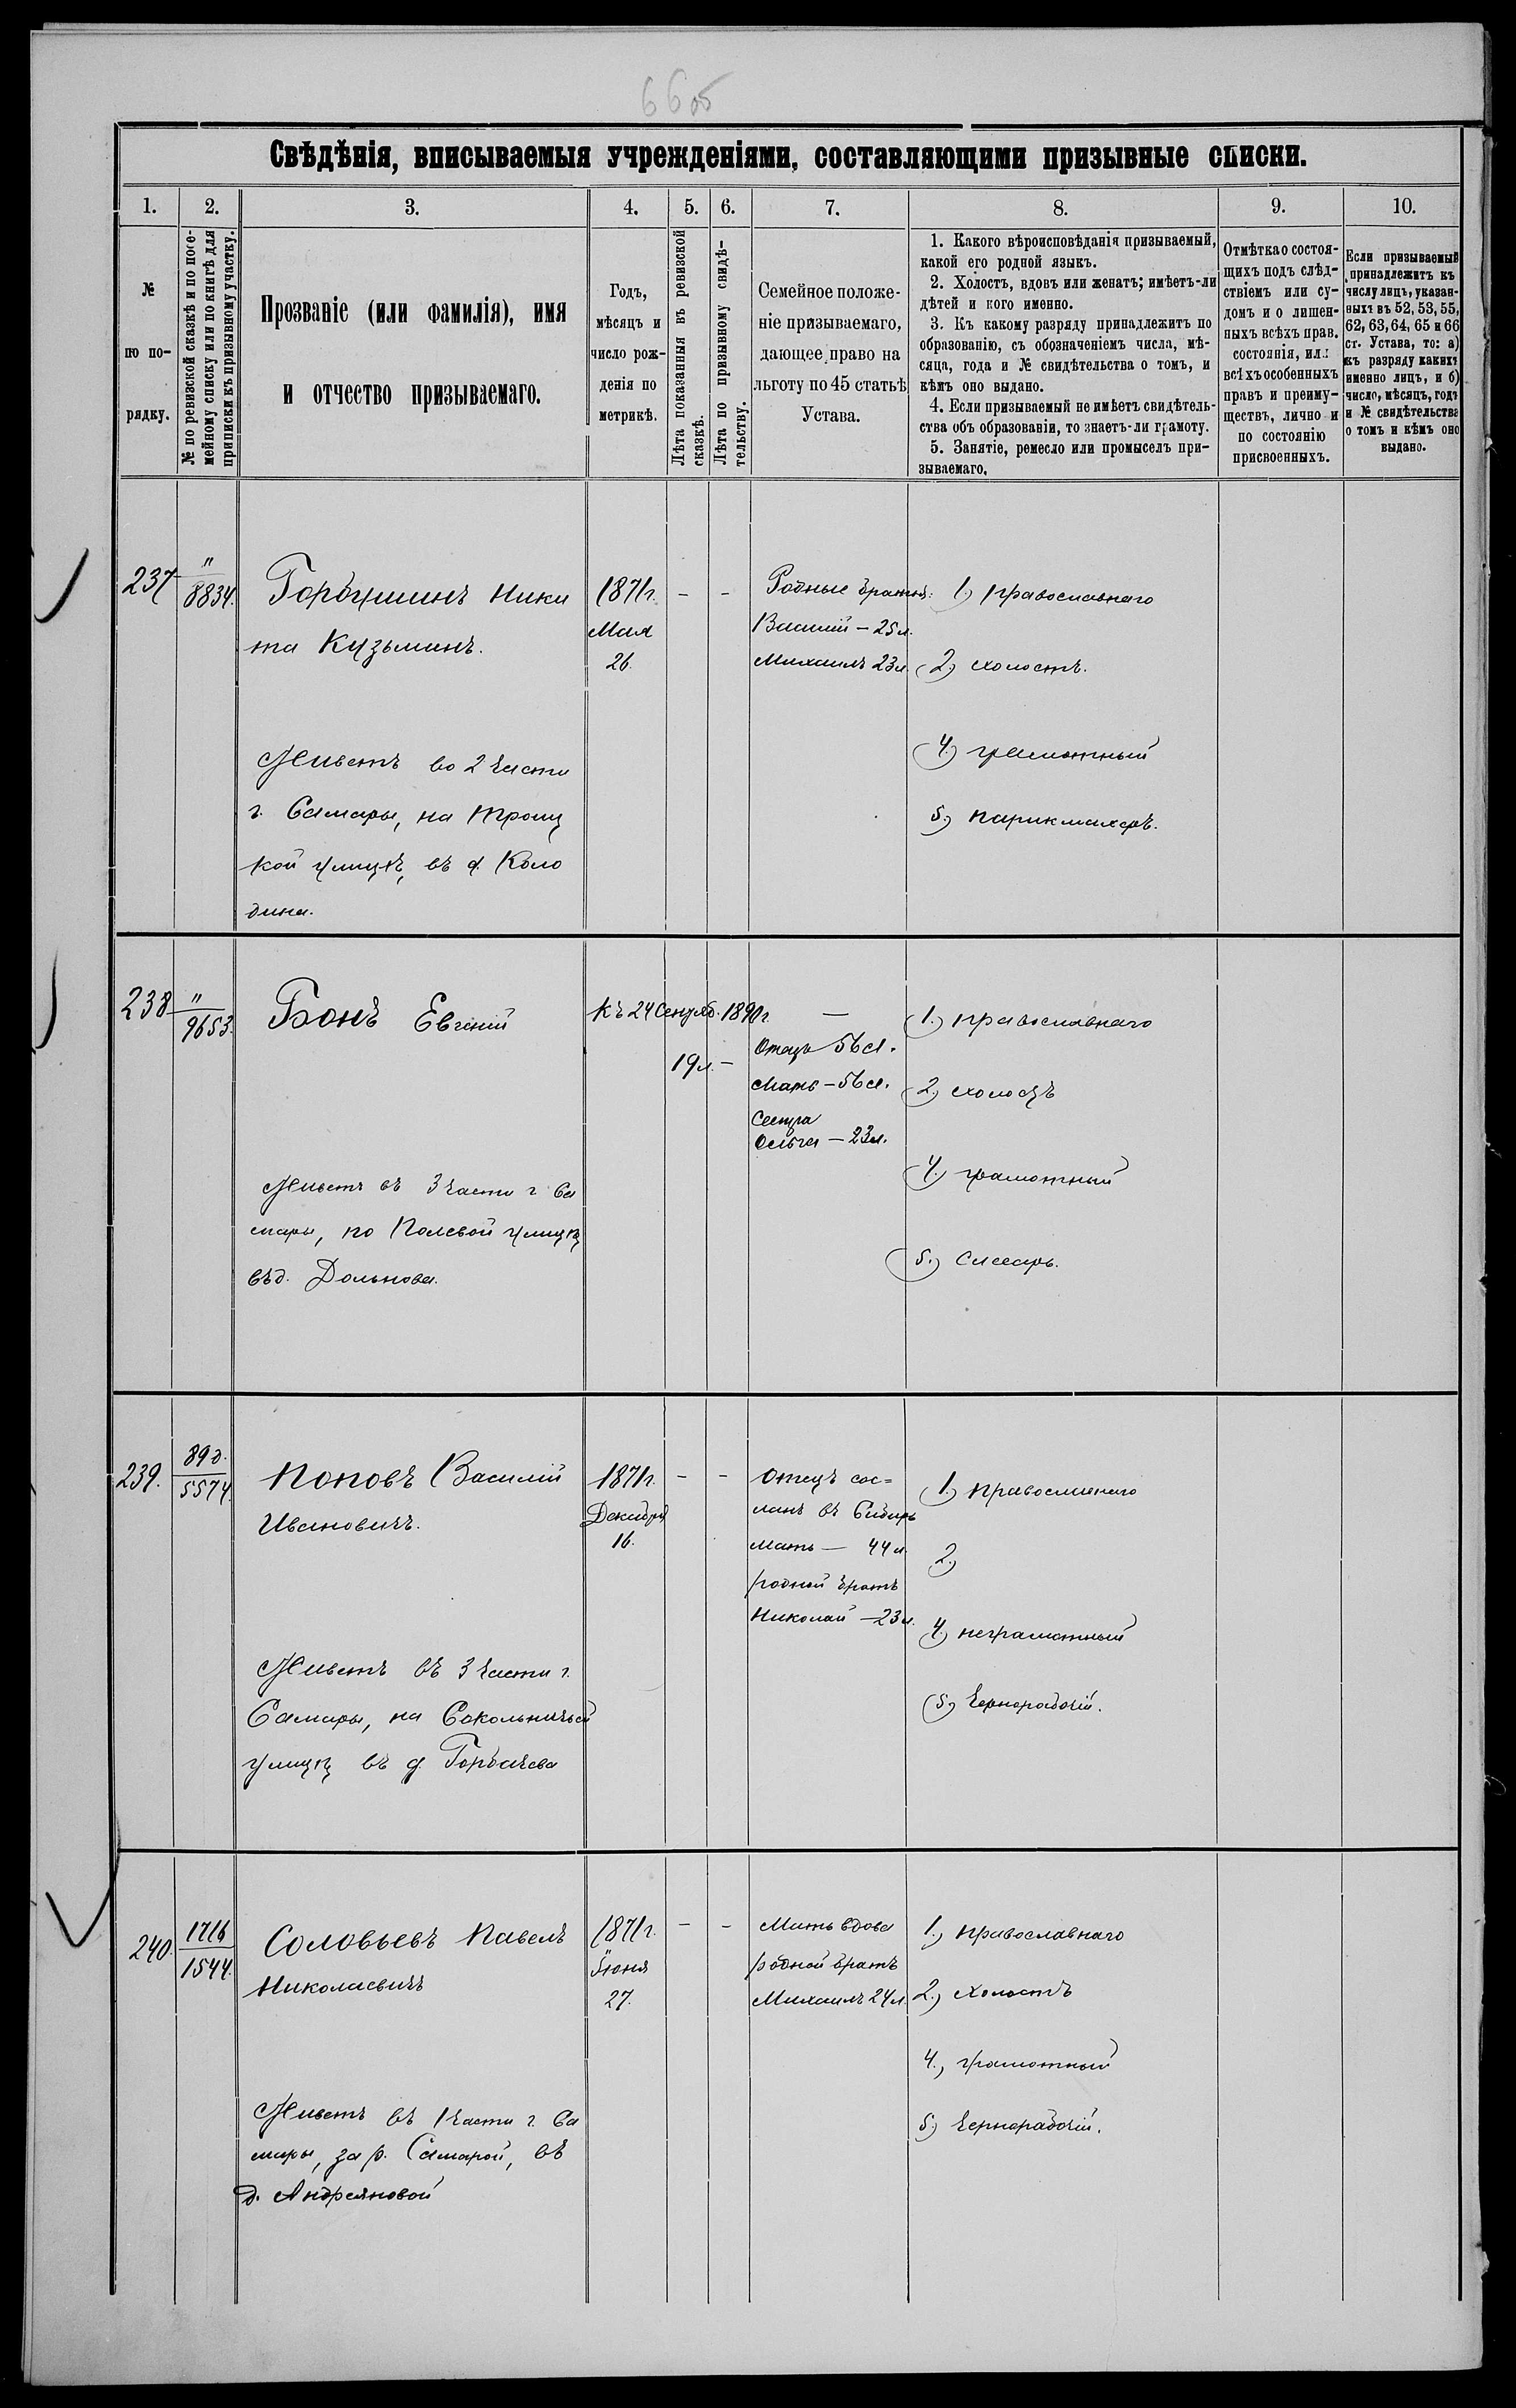 66об
Свѣдѣнія, вписываемыя учрежденіями, составляющими призывные списки.
1.
2.
3.
4.
5.
6.
7.
8.
9.
10.
№
по по-
рядку.
№ по ревизской сказкѣ и по посе-
мейному списку или по книгѣ для
приписки къ призывному участку.
Прозваніе (или фамилія), имя
и отчество призываемаго.
Годъ,
мѣсяцъ и
число рож-
денія по
метрикѣ.
Лѣта показанныя въ ревизской
сказкѣ.
Лѣта по призывному свидѣ-
тельству.
Семейное положе-
ніе призываемаго,
дающее право на
льготу по 45 статьѣ
Устава.
1. Какого вѣроисповѣданія призываемый,
какой его родной языкъ.
2. Холостъ, вдовъ или женатъ; имѣетъ-ли
дѣтей и кого именно.
3. Къ какому разряду принадлежитъ по
образованію, съ обозначеніемъ числа, мѣ-
сяца, года и № свидѣтельства о томъ, и
кѣмъ оно выдано.
4. Если призываемый не имѣетъ свидѣтель-
ства объ образованіи, то знаетъ-ли грамоту.
5. Занятіе, ремесло или промыселъ при-
зываемаго.
Отмѣтка о состоя-
щихъ подъ слѣд-
ствіемъ или су-
домъ и о лишен-
ныхъ всѣхъ прав.
состоянія, или
всѣхъ особенныхъ
правъ и преиму-
ществъ, лично и
по состоянію
присвоенныхъ.
Если призываемый
принадлежитъ къ
числу лицъ, указан-
ныхъ въ 52, 53, 55,
62, 63, 64, 65 и 66
ст. Устава, то: а)
къ разряду какихъ
именно лицъ, и б)
число, мѣсяцъ, годъ
и № свидѣтельства
о томъ и кѣмъ оно
выдано.
237
"
8834.
Горбушинъ Ники
та Кузьминъ.
Живетъ во 2 части
г. Самары, на Троиц
кой улицѣ, въ д. Коло
дина.
1871г.
Мая
26.
-
-
Родные братья:
Василій - 25л.
Михаилъ 23л.
1.) православнаго
2.) холостъ.
4.) грамотный
5.) парикмахеръ.
238
"
9653.
Бонъ Евгеній
Живетъ въ 3 части г. Са
мары, по Полевой улицѣ
въ д. Дольнова.
Къ 24 Сентяб. 1890г.
19л. -
—
Отецъ 56 л.
Мать - 56 л.
Сестра
Ольга - 23л.
1.) православнаго
2.) холостъ
4.) грамотный
5.) слесарь.
239.
89д.
5574.
Поповъ Василій
Ивановичъ.
Живетъ въ 3 части г.
Самары, на Сокольничьей
улицѣ въ д. Горбачева
1871г.
Декабря
16.
-
-
Отецъ сос=
ланъ въ Сибирь
Мать — 44 л.
родной братъ
Николай - 23л.
1.) православнаго
2.)
4.) неграмотный
5.) чернорабочій.
240.
1716
1544.
Соловьевъ Павелъ
Николаевичъ
Живетъ въ 1 части г. Са
мары, за р. Самарой, въ
д. Андреяновой
1871г.
Іюня
27.
-
-
Мать вдова
родной братъ
Михаилъ 24л.
1.) православнаго
2.) холостъ
4.) грамотный
5.) чернорабочій.